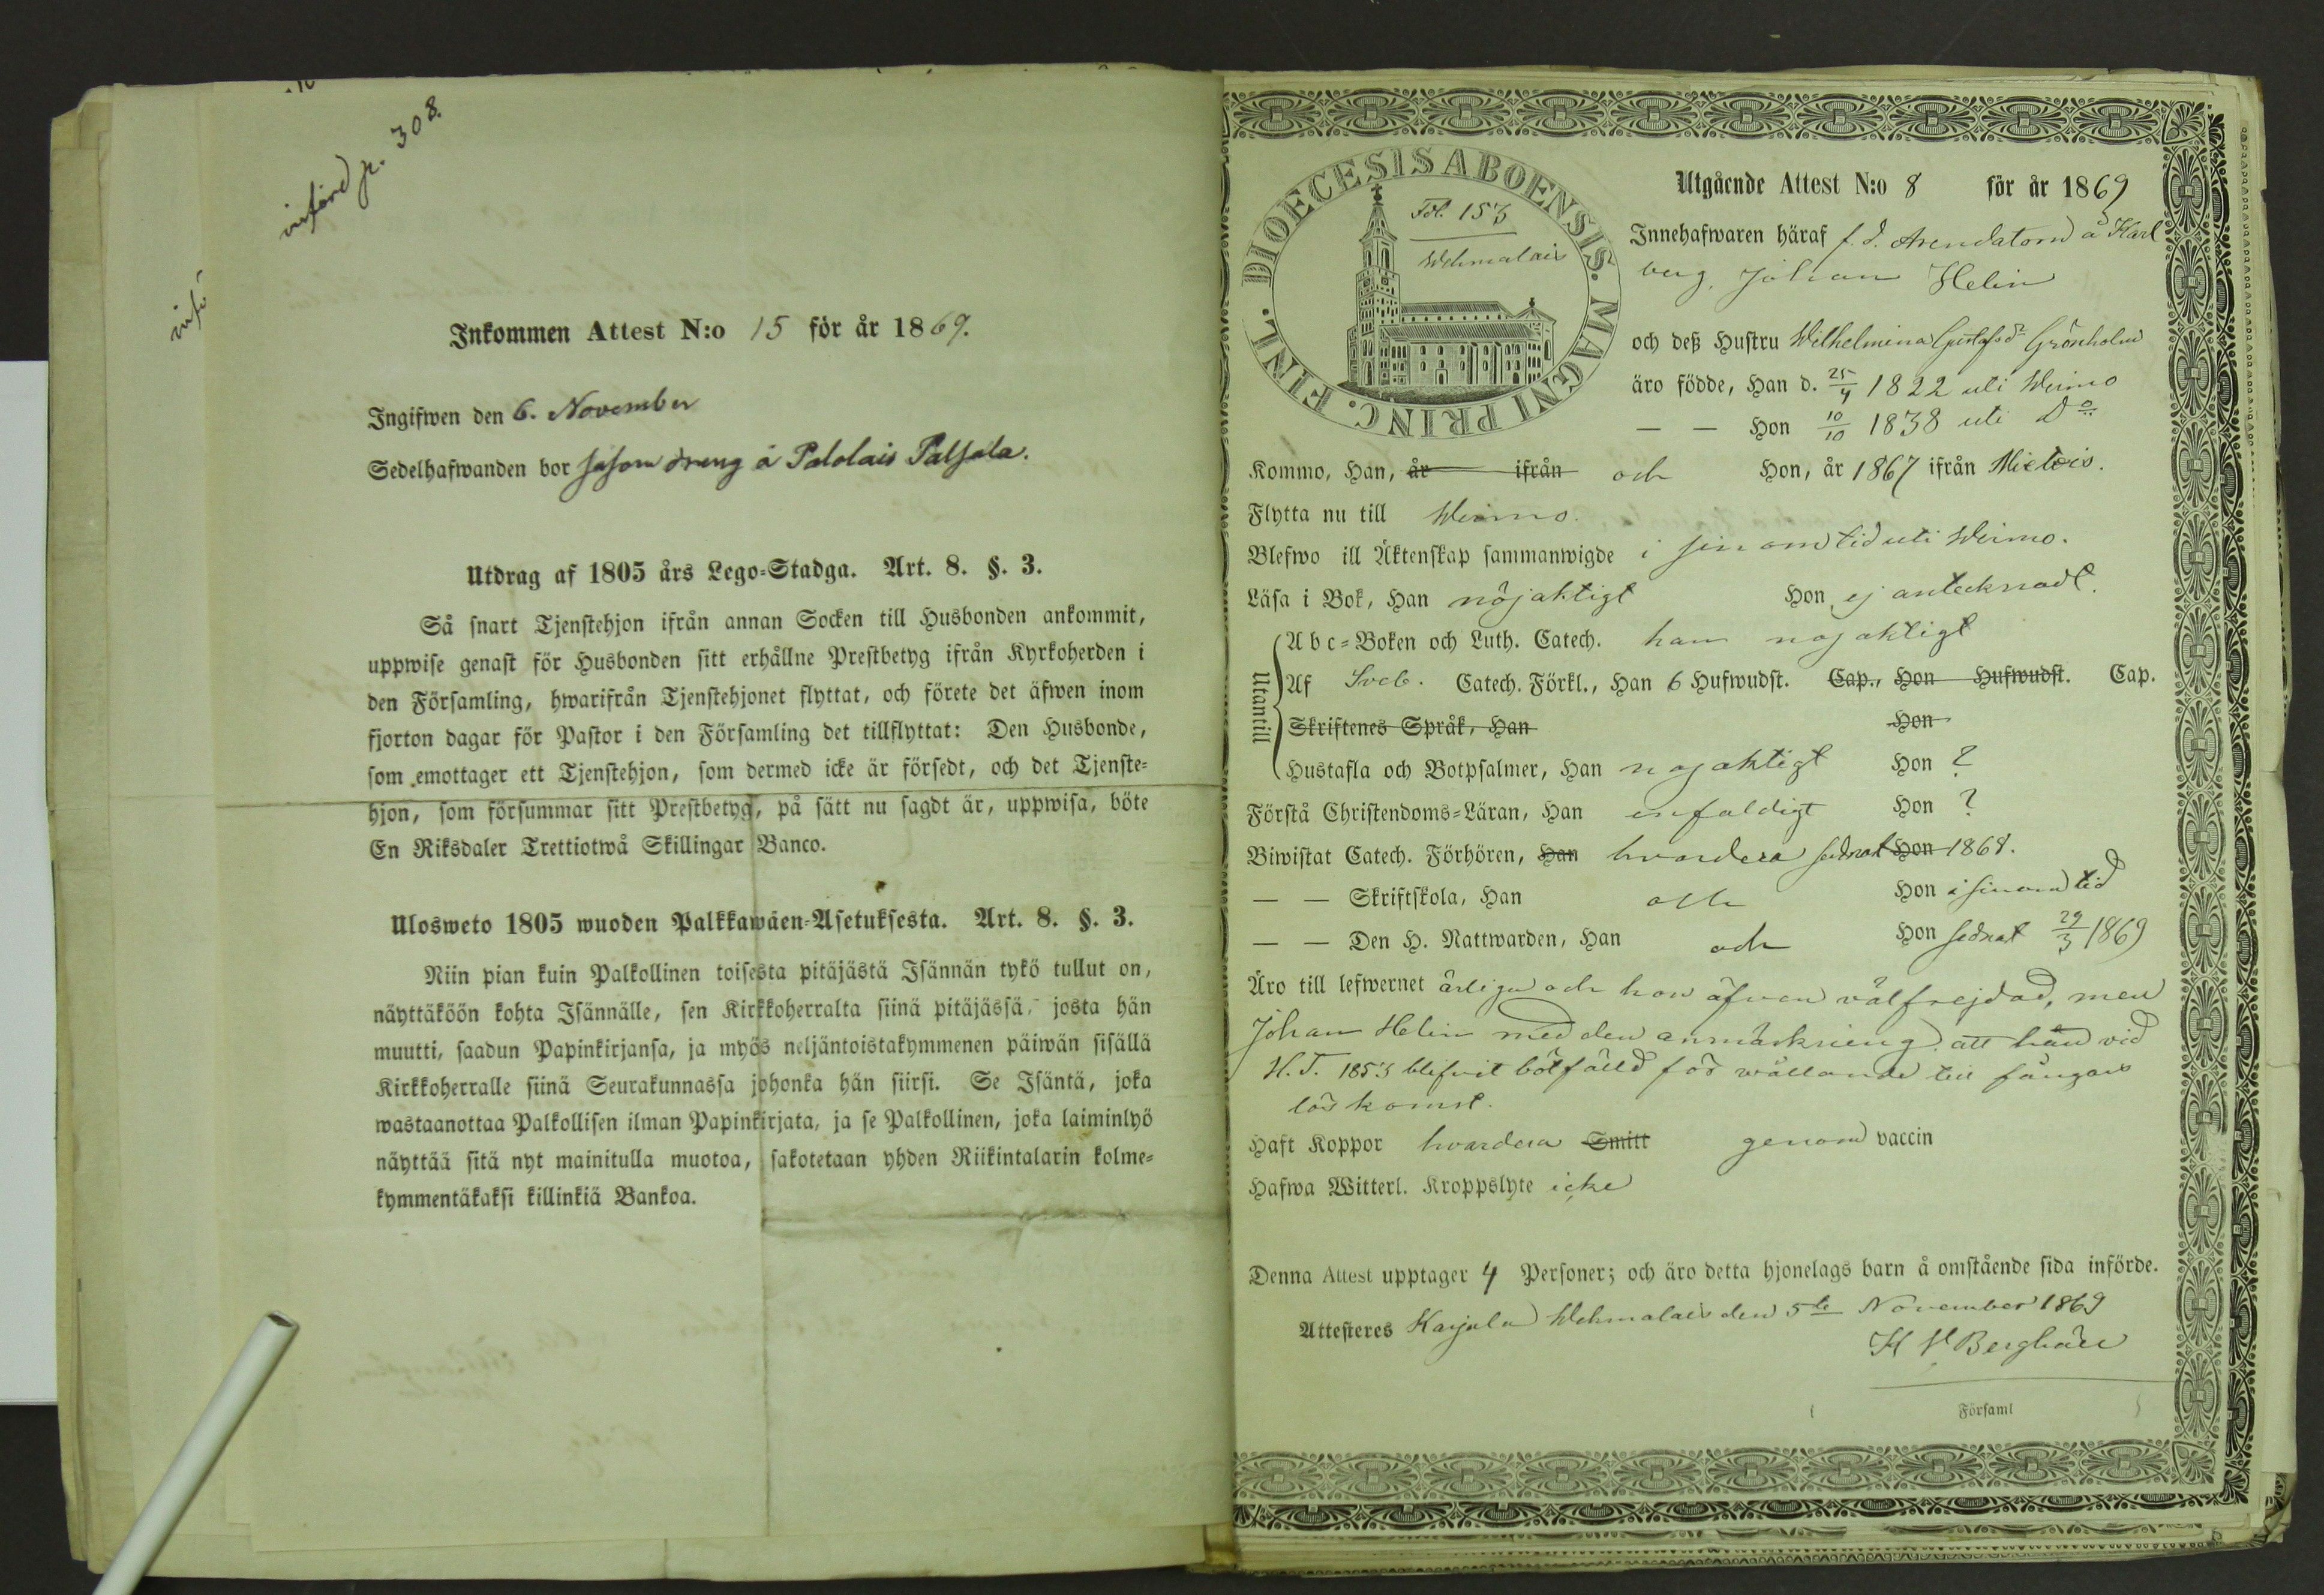 införd p. 308.
inf
Inkommen Attest N:o 15 för år 1869.
Ingifwen den 6. November
Sedelhafwanden bor såsom dreng å Palolais Palsala.
Utdrag af 1805 års Lego-Stadga. Art. 8. §. 3.
Så snart Tjenstehjon ifrån annan Socken till Husbonden ankommit,
uppwise genast för Husbonden sitt erhållne Prestbetyg ifrån Kyrkoherden i
den Församling, hwarifrån Tjenstehjonet flyttat, och förete det äfwen inom
fjorton dagar för Pastor i den Församling det tillflyttat: Den Husbonde,
som emottager ett Tjenstehjon, som dermed icke är försedt, och det Tjenste-
hjon, som försummar sitt Prestbetyg, på sätt nu sagdt är, uppwisa, böte
En Riksdaler Trettiotwå Skillingar Banco.
Ulosweto 1805 wuoden Palkkawäen-Asetuksesta. Art. 8. §. 3.
Niin pian kuin Palkollinen toisesta pitäjästä Isännän tykö tullut on,
näyttäköön kohta Isännälle, sen Kirkkoherralta siinä pitäjässä, josta hän
muutti, saadun Papinkirjansa, ja myös neljäntoistakymmenen päiwän sisällä
Kirkkoherralle siinä Seurakunnassa johonka hän siirsi. Se Isäntä, joka
wastaanottaa Palkollisen ilman Papinkirjata, ja se Palkollinen, joka laiminlyö
näyttää sitä nyt mainitulla muotoa, sakotetaan yhden Riikintalarin kolme-
kymmentäkaksi killinkiä Bankoa.
DIOECESIS ABOENSIS. MAGNI PRINC. FINL.
Fol. 153
Wehmalais
Utgående Attest N:o 8 för år 1869
Innehafwaren häraf f. d. Arendatorn å Karl
berg, Johan Helin
och deß Hustru Wilhelmina Gustafsdr Grönholm
äro födde, Han d. 25/4 1822 uti Wirmo
— — Hon 10/10 1838 uti Do
Kommo, Han, år ifrån och Hon, år 1867 ifrån Mietois.
Flytta nu till Wirmo.
Blefwo ill Äktenskap sammanwigde i sinom tid uti Wirmo.
Läsa i Bok, Han nöjaktigt Hon ej antecknadt.
Utantill
Abc-Boken och Luth. Catech. han nöjaktigt
Af Sveb. Catech. Förkl., Han 6 Hufwudst. Cap., Hon Hufwudst. Cap.
Skriftenes Språk, Han Hon
Hustafla och Botpsalmer, Han nöjaktigt Hon ?
Förstå Christendoms-Läran, Han enfaldigt Hon ?
Biwistat Catech. Förhören, Han hvardera sednast Hon 1868.
— — Skriftskola, Han och Hon i sinom tid
— — Den H. Nattwarden, Han och Hon sednast 29/3 1869
Äro till lefwernet ärliga och hon äfven välfrejdad, men
Johan Helin med den anmärkning att han vid
H. T. 1853 blifvit bötfälld för wållande till fångars
löskomst.
Haft Koppor hvardera Smitt genom vaccin
Hafwa Witterl. Kroppslyte icke
Denna Attest upptager 4 Personer; och äro detta hjonelags barn å omstående sida införde.
Attesteres Karjala Wehmalais den 5te November 1869
H V Berghäll
Församl